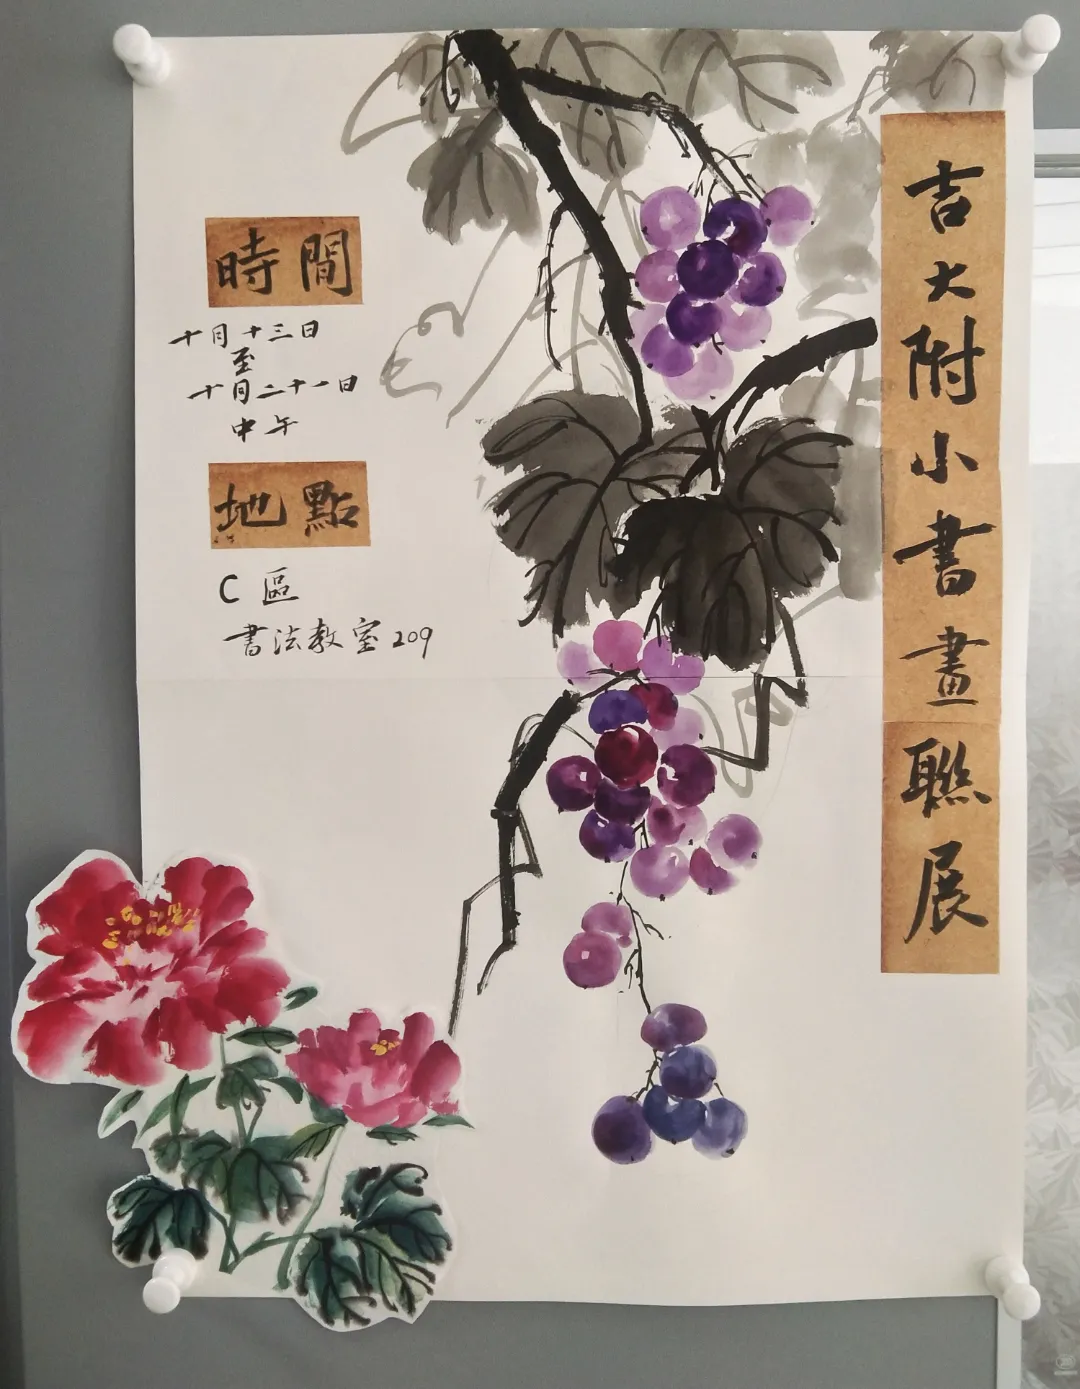 吉大附小書畫聯展
時間
十月十三日
至
十月二十一日
中午
地點
C區
書法教室209